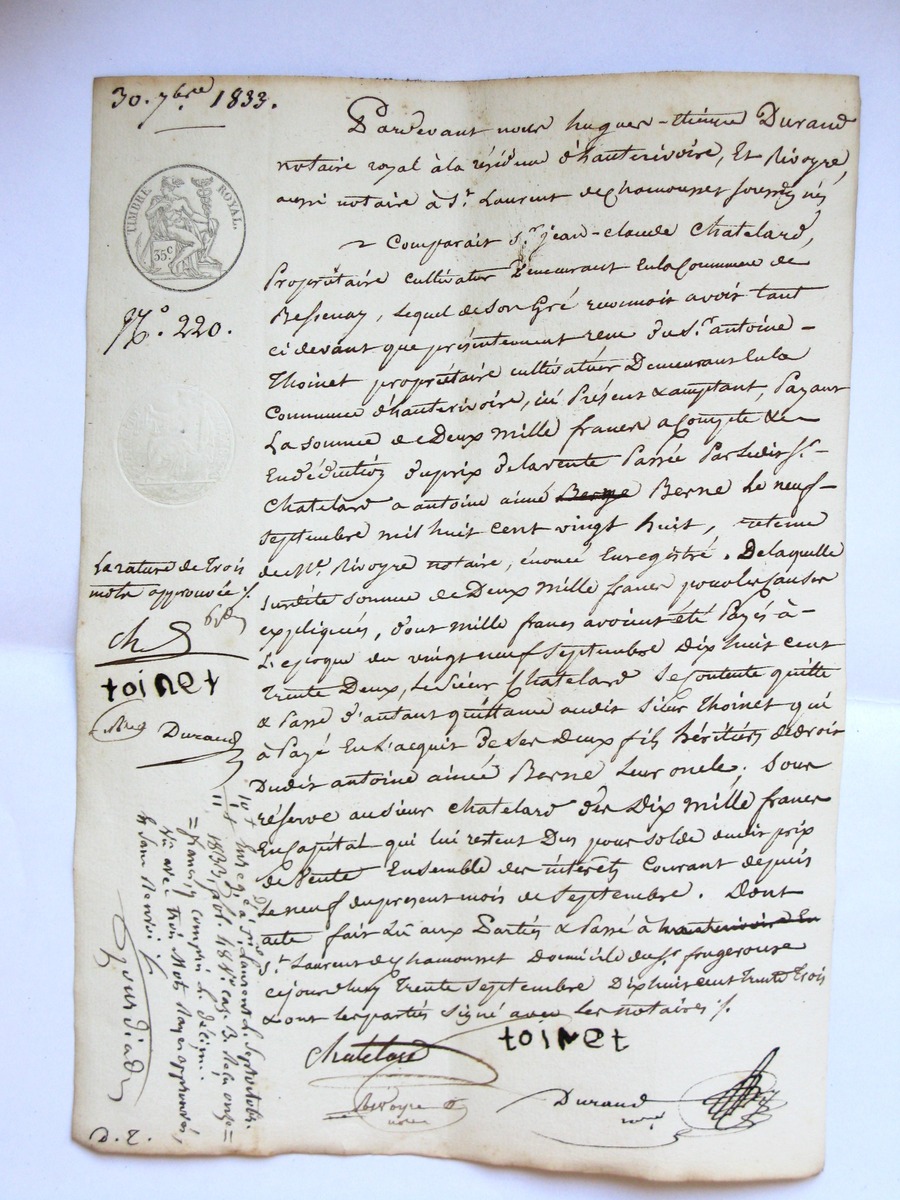 30. 7bre 1833.
TIMBRE ROYAL.
35c
No. 220.
Pardevant nous hugues-étienne Durand
notaire royal à la résidence d'hauterivoire, Et Rivoyre,
aussi notaire à St. Laurent de Chamousset soussignés
Comparait Sr. jean-claude Chatelard,
Propriétaire cultivateur demeurant En la Commune de
Bessenay, lequel de Son Gré reconnoit avoir tant
ci devant que présentement recu du Sr. antoine
Thoinet propriétaire cultivateur Demeurant En la
Commune d'hauterivoire, ici Présent & acceptant, Payant
La somme de Deux mille francs acompte &
En déduction du prix de la vente Passée Par ledit Sr.
Chatelard a antoine aimé Berne Berne le neuf
Septembre mil huit cent vingt huit, retenue
de Me. Rivoyre notaire, énoncé Enregistré. De laquelle
Susdite somme de Deux mille francs pour les causes
expliquées, dont mille francs avoient été Payés à
L'epoque du vingt neuf Septembre Dix huit cent
trente Deux, le Sieur Chatelard Se Contente quitte
& Passe d'autant quittance audit Sieur Thoinet qui
à Payé En L'acquit de ses Deux fils héritiers de droit
Dudit antoine aimée Berne Leur oncle; Sous
réserve au Sieur Chatelard des Dix mille francs
En Capital qui lui restent Dus pour solde dudit prix
de Vente Ensemble des intérêts Courant depuis
Le neuf du present mois de Septembre. Dont
acte fait Lu aux Partis & Passé à hauterivoire En
St. Laurent de Chamousset Domicile du Sr. frugerouse
cejourd'huy Trente Septembre Dix huit cent trente Trois
& ont les partis Signé avec les notaires /.
Chatelard
toinet
Rivoyre
Durand
La rature de Trois
mots approuvée /.
Ch
toinet
Durand
Enregistré à St. Laurent le Sept octobre
1833, fol. 48 Vo. Cas. 3. Reçu onze
francs compris Le Décime.
Vu avec trois Mots Rayés approuvés,
& Sans Renvoi /.
D. E.